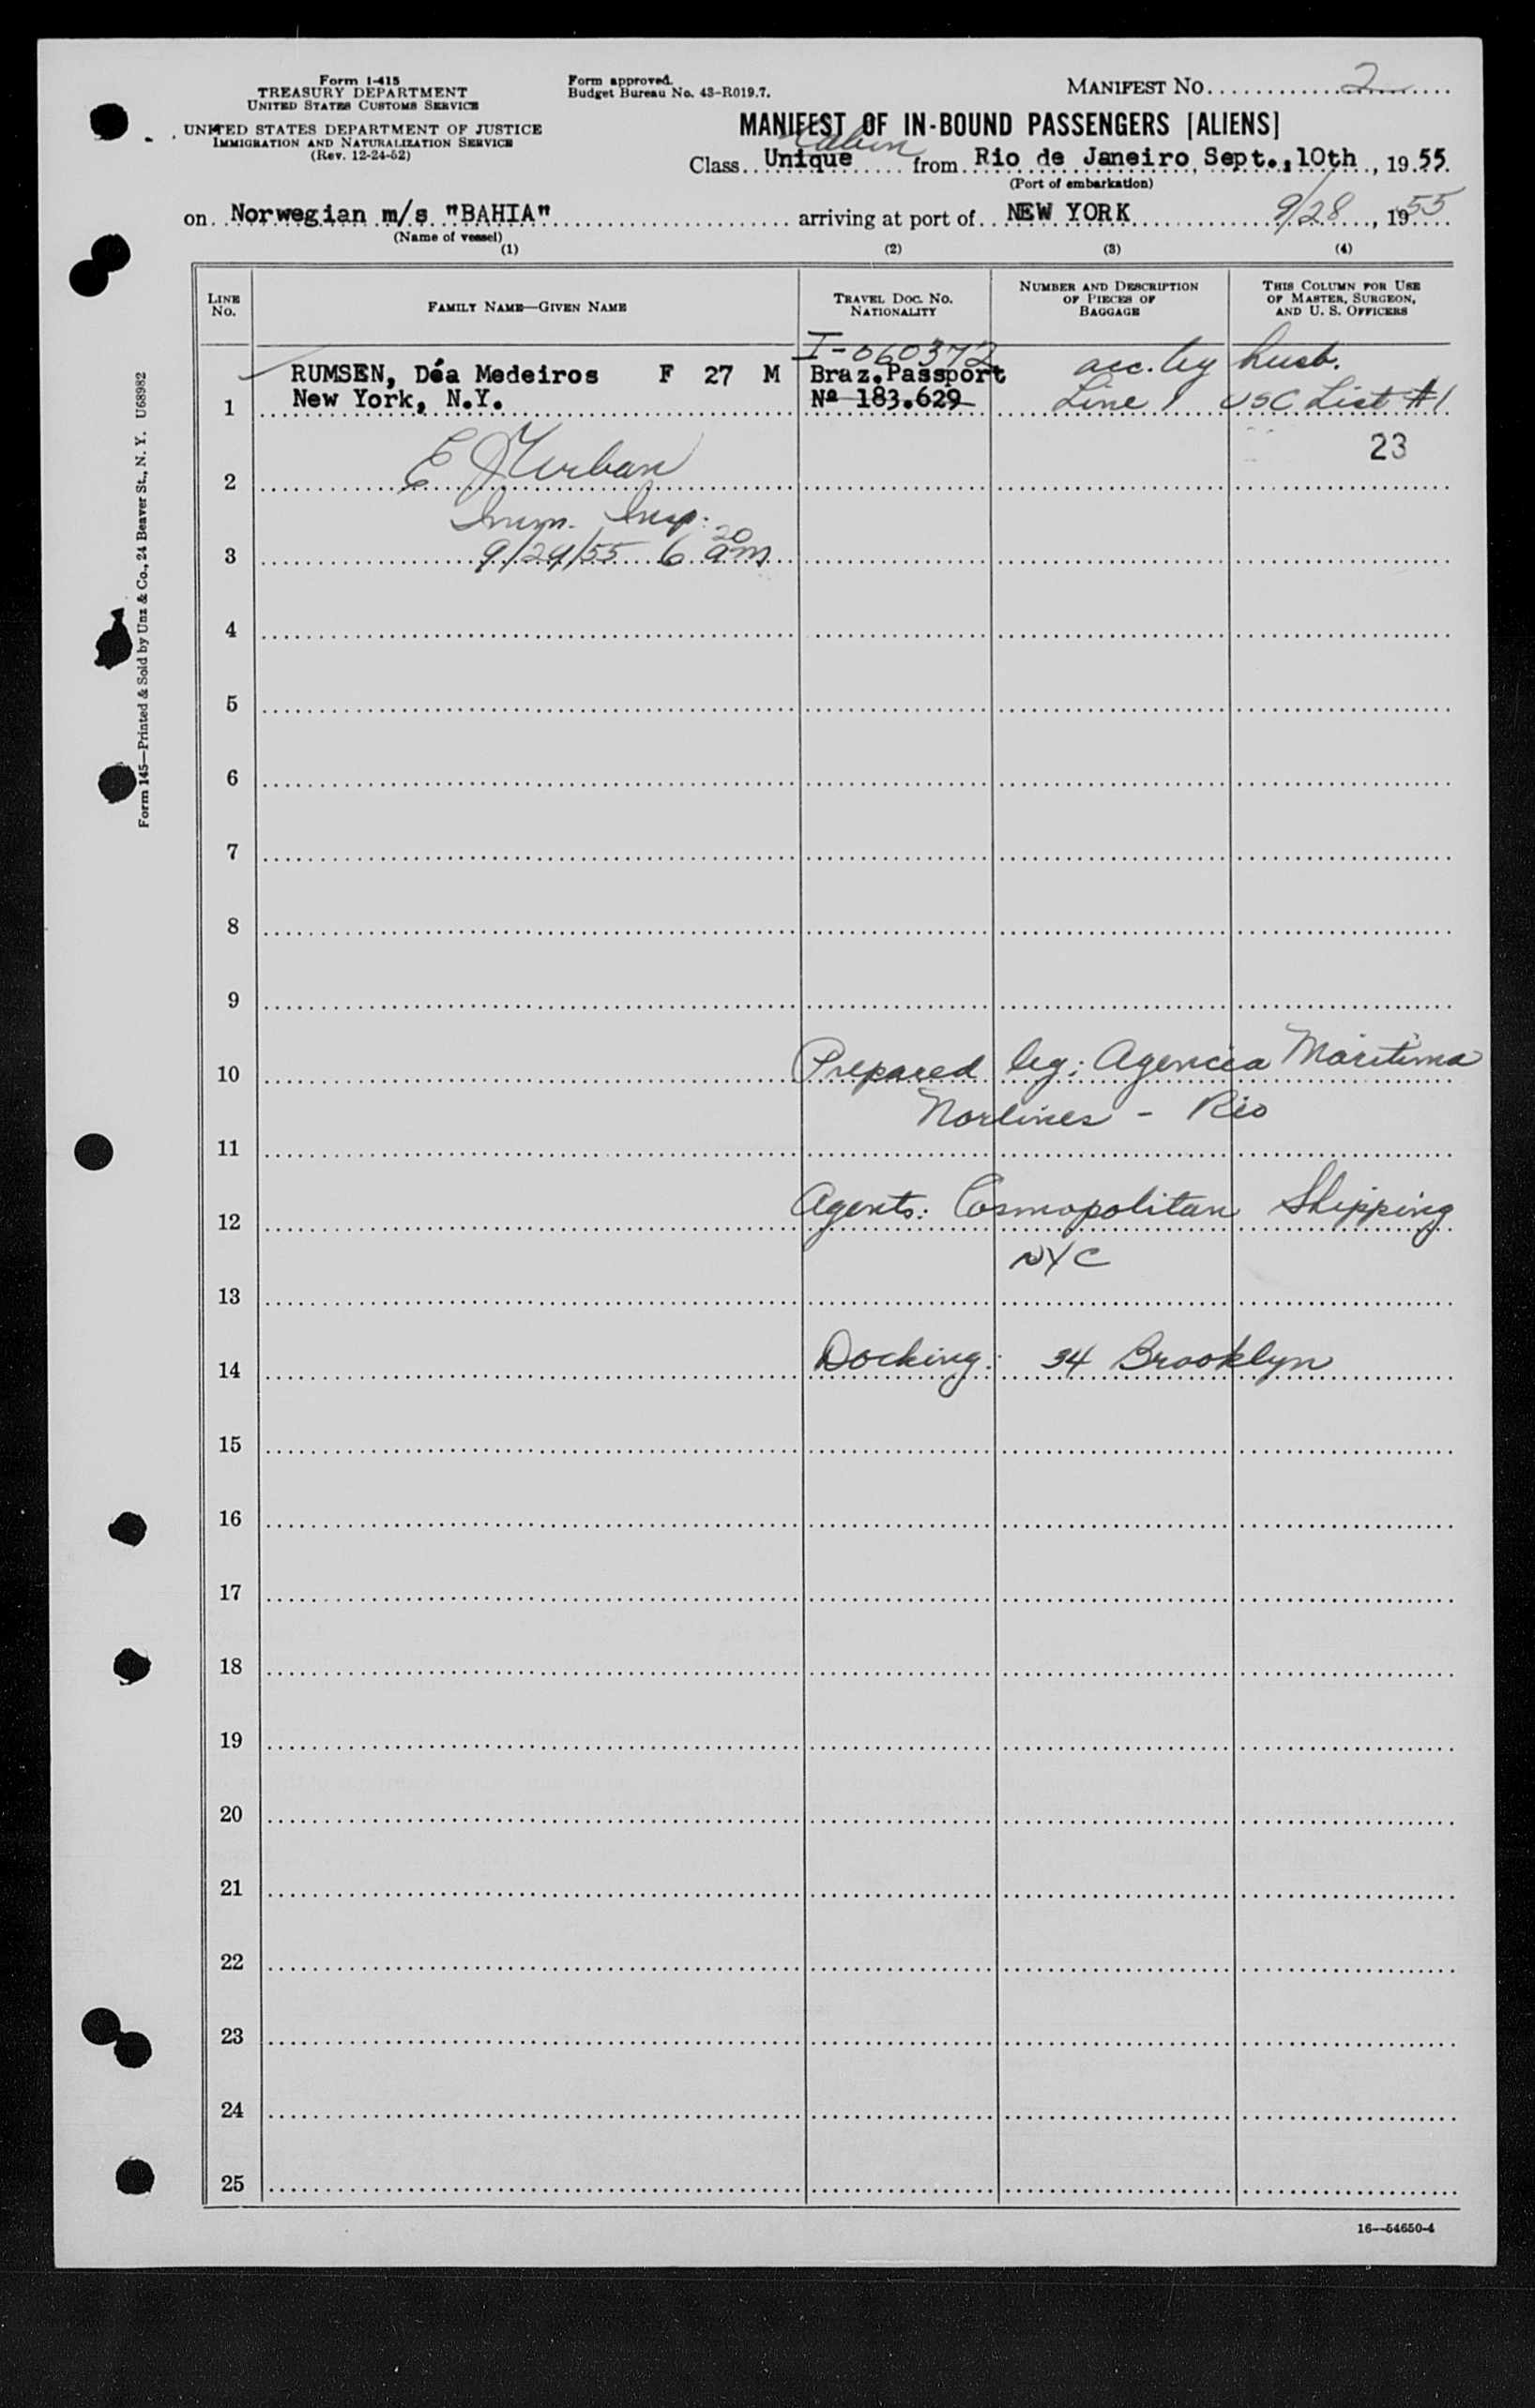 Form I-415
TREASURY DEPARTMENT
UNITED STATES CUSTOMS SERVICE
UNITED STATES DEPARTMENT OF JUSTICE
IMMIGRATION AND NATURALIZATION SERVICE
(Rev. 12-24-52)
Form approved.
Budget Bureau No. 43-R019.7.
MANIFEST NO. 2
MANIFEST OF IN-BOUND PASSENGERS [ALIENS]
Cabin
Class Unique from Rio de Janeiro, Sept., 10th, 19 55
(Port of embarkation)
on Norwegian m/s "BAHIA" arriving at port of NEW YORK 9/28, 19 55
(Name of vessel)
(1) (2) (3) (4)
LINE NO. FAMILY NAME—GIVEN NAME TRAVEL DOC. NO. NATIONALITY NUMBER AND DESCRIPTION OF PIECES OF BAGGAGE THIS COLUMN FOR USE OF MASTER, SURGEON, AND U. S. OFFICERS
I-060372
RUMSEN, Déa Medeiros F 27 M Braz.Passport acc. by husb.
1 New York, N.Y. Nº 183.629 Line 1 USC List #1
23
2 E J Urban
Imm. Insp.
3 9/29/55 6 20 am
4
5
6
7
8
9
10 Prepared by: Agencia Maritima
Norlines - Rio
11
12 Agents: Cosmopolitan Shipping
NYC
13
14 Docking: 34 Brooklyn
15
16
17
18
19
20
21
22
23
24
25
16—54650-4
Form 145—Printed & Sold by Unz & Co., 24 Beaver St., N. Y. U68982